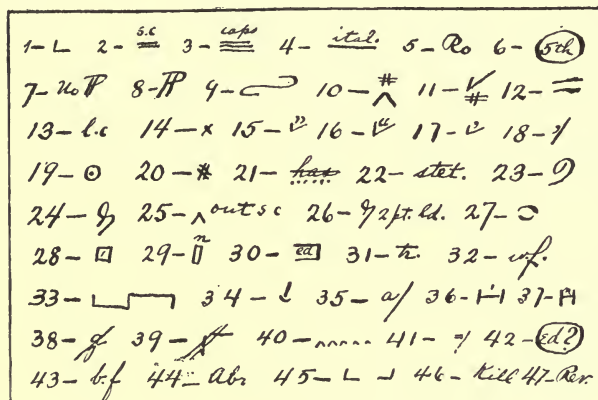 1- L 2- s.c 3- caps 4- ital. 5- Ro 6- 5th
7- No ¶ 8- ¶ 9- 10- # ^ 11- # 12- =
13- l.c 14- x 15- " 16- 17- 18- ;/
19- ⊙ 20- # 21- has 22- stet. 23- 9
24- 25- ^ out s c 26- 2pt. ld. 27-
28- □ 29- n 30- ed 31- tr. 32- w.f.
33- 34- 35- a/ 36- 37-
38- 39- 40- 41- =/ 42- ed?
43- b.f 44- Abr 45- L ┘ 46- Kill 47- Rev.